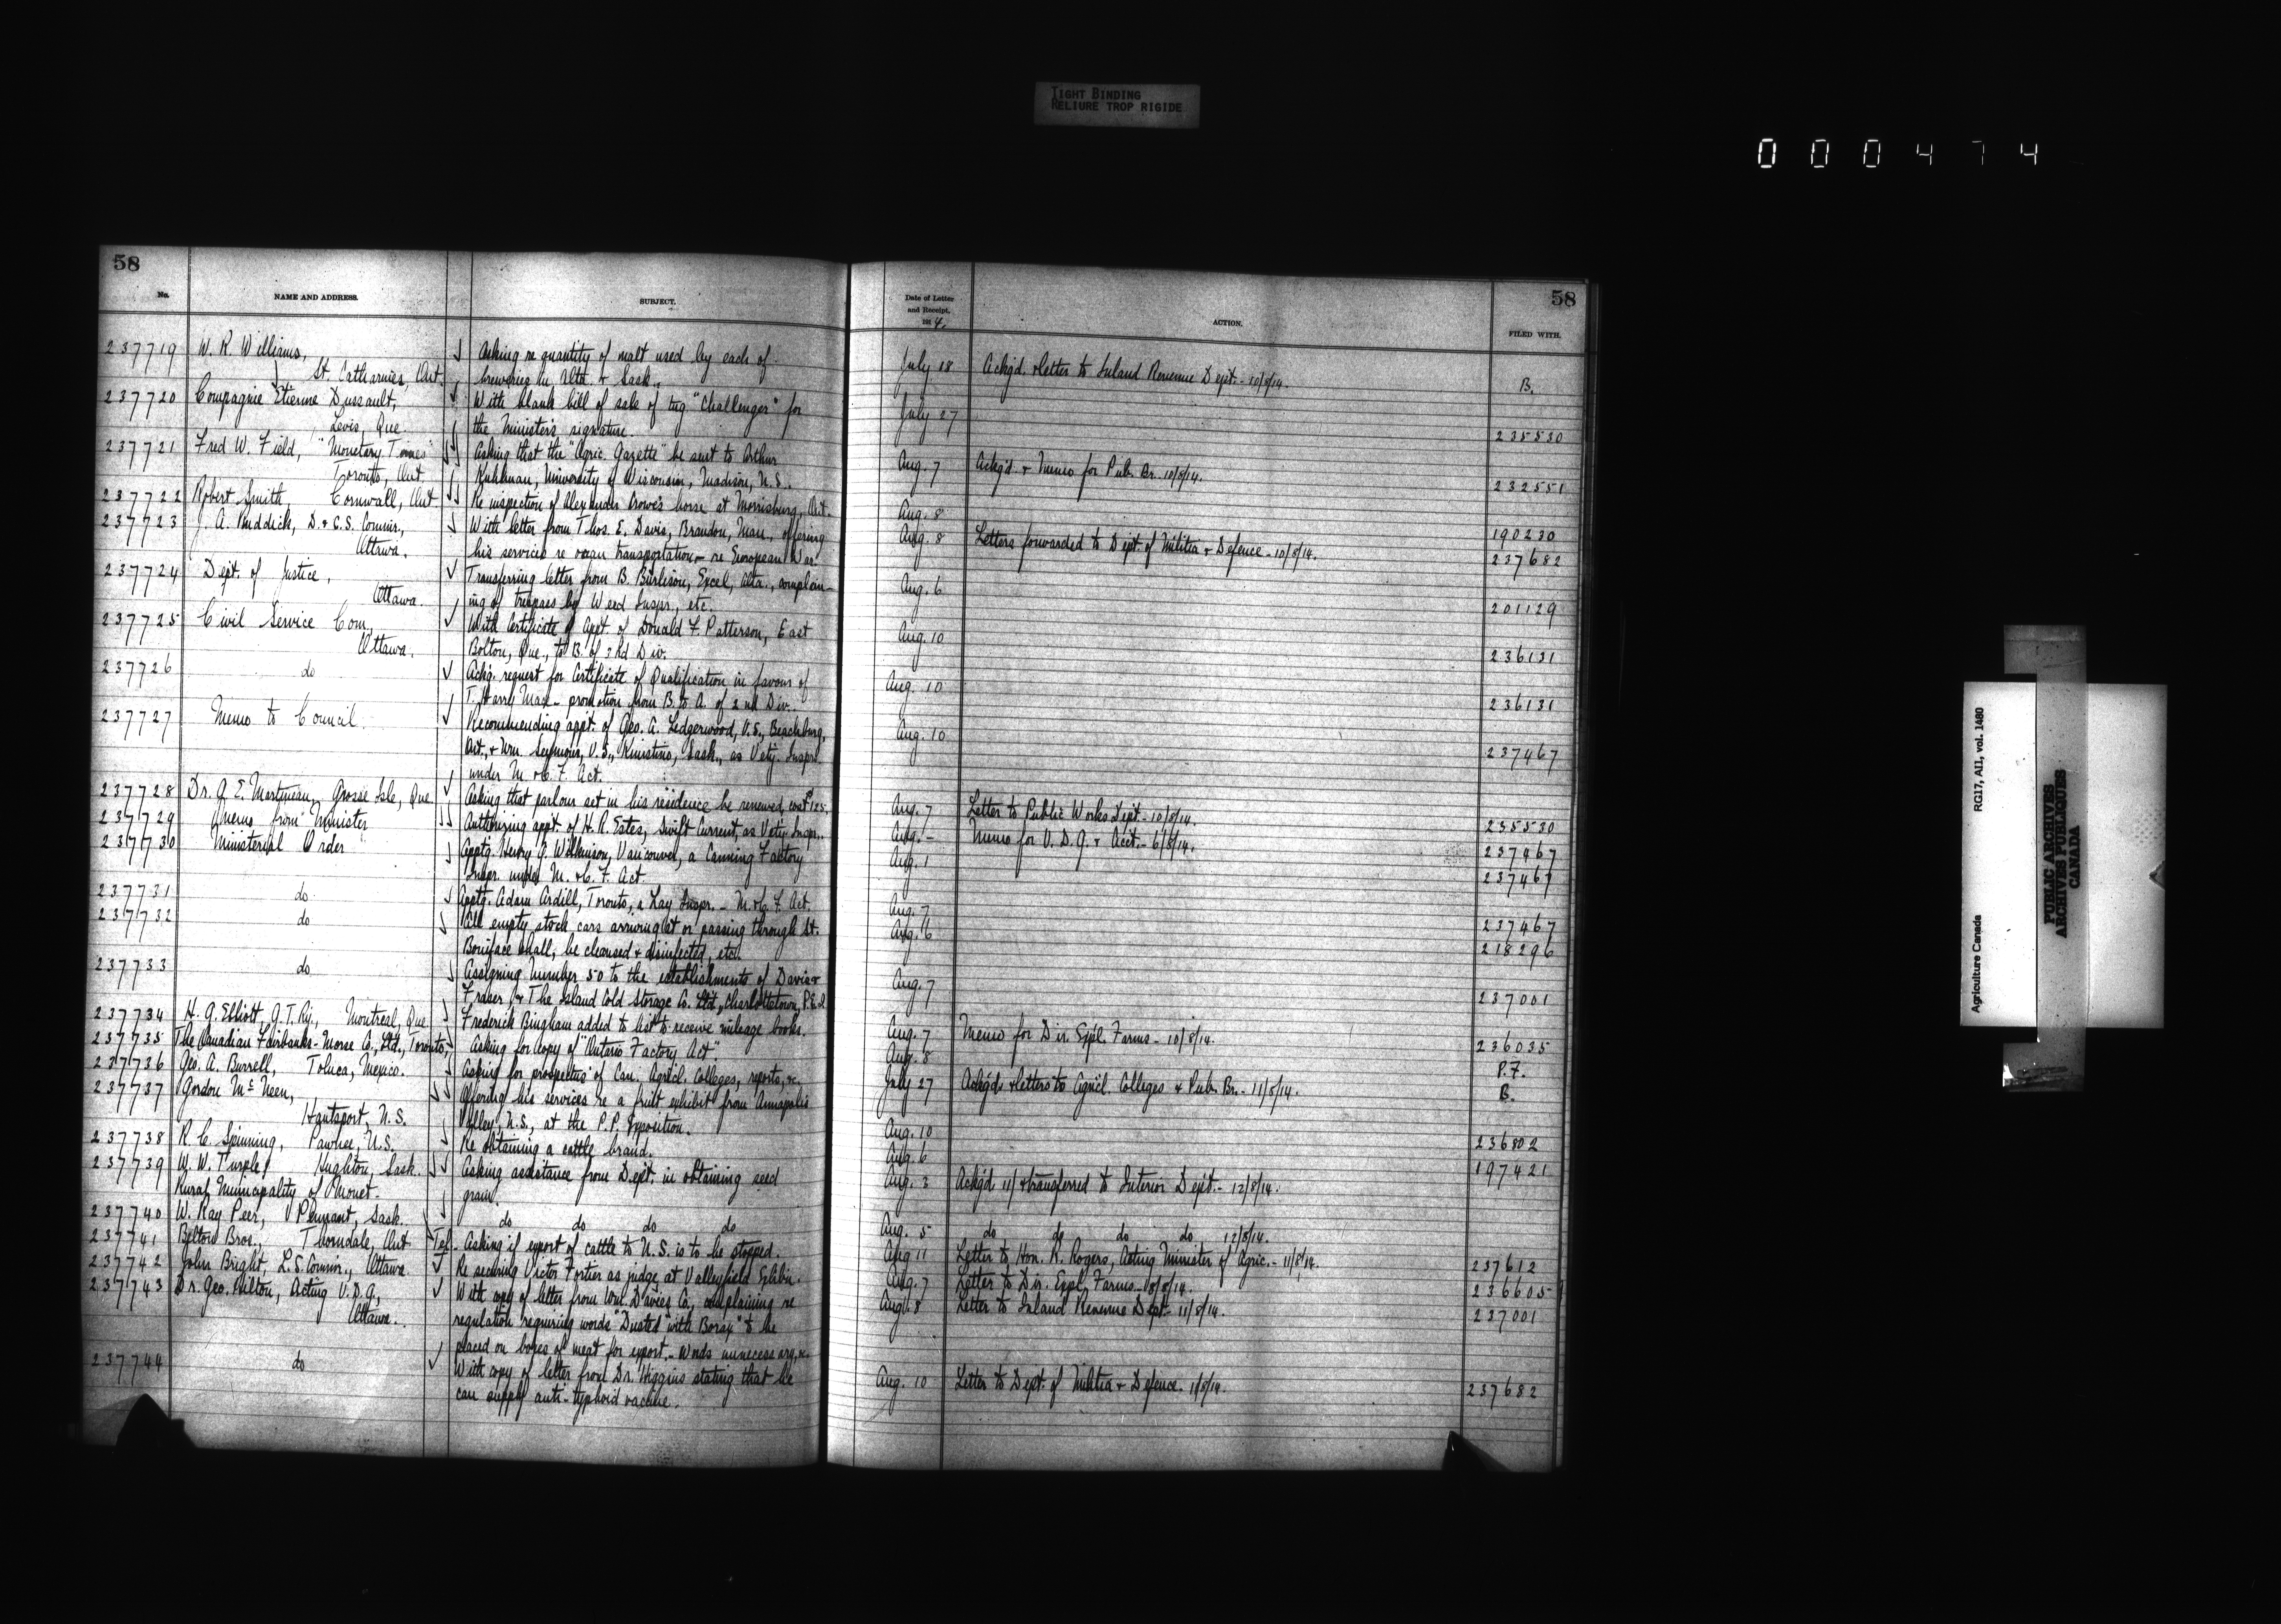 TIGHT BINDING
RELIURE TROP RIGIDE
000474
58
No.
NAME AND ADDRESS.
SUBJECT.
237719 W. R. Williams, Asking re quantity of malt used by each of
St. Catharines, Ont. breweries in Alta. & Sask.
237720 Compagnie Etienne Dussault, With blank bill of sale of tug "Challenger" for
Levis, Que. the Minister's signature.
237721 Fred W. Field, "Monetary Times" Asking that the "Agric. Gazette" be sent to Arthur
Toronto, Ont. Kuhlman, University of Wisconsin, Madison, U.S.
237722 Robert Smith, Cornwall, Ont. Re inspection of Alexander Crowe's horse at Morrisburg, Ont.
237723 J. A. Ruddick, D. & C.S. Commr., With letter from Thos. E. Davis, Brandon, Man., offering
Ottawa. his services re ocean transportation - re European War.
237724 Dept. of Justice, Transferring letter from B. Burlison, Excel, Alta., complain-
Ottawa. ing of trespass by Weed Inspr., etc.
237725 Civil Service Com., With Certificate of Appt. of Donald F. Patterson, East
Ottawa. Bolton, Que., to B. of 3rd Div.
237726 do Ackg. request for Certificate of Qualification in favour of
T. Harry Mace - promotion from B. to A. of 2nd Div.
237727 Memo to Council. Recommending appt. of Geo. A. Ledgerwood, V.S., Beachburg,
Ont., & Wm. Seymour, V.S., Kinistino, Sask., as Vety. Insprs.
under M. & C. F. Act.
237728 Dr. G. E. Martineau, Grosse Isle, Que. Asking that parlour set in his residence be renewed, cost $125.
237729 Memo from Minister Authorizing appt. of H. R. Estes, Swift Current, as Vety. Inspr.
237730 Ministerial Order Apptg. Henry J. Wilkinson, Vancouver, a Canning Factory
Inspr. under M. & C. F. Act.
237731 do Apptg. Adam Ardill, Toronto, a Lay Inspr. - M. & C. F. Act.
237732 do All empty stock cars arriving at or passing through St.
Boniface shall be cleansed & disinfected, etc.
237733 do Assigning number 50 to the establishments of Davis &
Fraser & The Island Cold Storage Co. Ltd., Charlottetown, P.E.I.
237734 H. G. Elliott, G.T. Ry., Montreal, Que. Frederick Bingham added to list to receive mileage books.
237735 The Canadian Fairbanks-Morse Co., Ltd., Toronto, Asking for copy of "Ontario Factory Act".
237736 Geo. A. Burrell, Toluca, Mexico. Asking for prospectus of Can. Agricl. Colleges, reports, &c.
237737 Gordon McNeen, Offering his services re a fruit exhibit from Annapolis
Hantsport, N.S. Valley, N.S., at the P.P. Exposition.
237738 R. C. Spinning, Pawnee, U.S. Re obtaining a cattle brand.
237739 W. W. Turple, Hughton, Sask. Asking assistance from Dept. in obtaining seed
Rural Municipality of Monet. grain.
237740 W. Ray Peer, Pennant, Sask. do do do do
237741 Belton Bros., Thorndale, Ont Tel. Asking if export of cattle to U.S. is to be stopped.
237742 John Bright, L.S. Commr., Ottawa. Re securing Victor Fortier as judge at Valleyfield Exhibn.
237743 Dr. Geo. Hilton, Acting V.D.G., With copy of letter from Wm. Davies Co., complaining re
Ottawa. regulation requiring words "Dusted with Borax" to be
placed on boxes of meat for export. - Words unnecessary, &c.
237744 do With copy of letter from Dr. Higgins stating that he
can supply anti-typhoid vaccine.
58
Date of Letter
and Receipt,
1914.
ACTION.
FILED WITH.
July 18 Ackgd. & letter to Inland Revenue Dept. - 10/8/14. B.
July 27 235530
Aug. 7 Ackgd. & Memo for Pub. Br. 10/8/14. 232551
Aug. 8 190230
Aug. 8 Letters forwarded to Dept. of Militia & Defence - 10/8/14. 237682
Aug. 6 201129
Aug. 10 236131
Aug. 10 236131
Aug. 10 237467
Aug. 7 Letter to Public Works Dept. - 10/8/14. 235530
Aug. - Memo for V.D.G. & Acct. - 6/8/14. 237467
Aug. 1 237467
Aug. 7 237467
Aug. 6 218296
Aug. 7 237001
Aug. 7 Memo for Dir. Expl. Farms - 10/8/14. 236035
Aug. 8 P.F.
July 27 Ackgd. & letters to Agricl. Colleges & Pub. Br. - 11/8/14. B.
Aug. 10 236802
Aug. 6 197421
Aug. 3 Ackgd. 11/ & transferred to Interior Dept. - 12/8/14.
Aug. 5 do do do do 12/8/14.
Aug 11 Letter to Hon. R. Rogers, Acting Minister of Agric. - 11/8/14. 237612
Aug. 7 Letter to Dir. Expl. Farms - 8/8/14. 236605
Aug. 8 Letter to Inland Revenue Dept. - 11/8/14. 237001
Aug. 10 Letter to Dept. of Militia & Defence. 11/8/14. 237682
Agriculture Canada RG17, AII, vol. 1480
PUBLIC ARCHIVES
ARCHIVES PUBLIQUES
CANADA